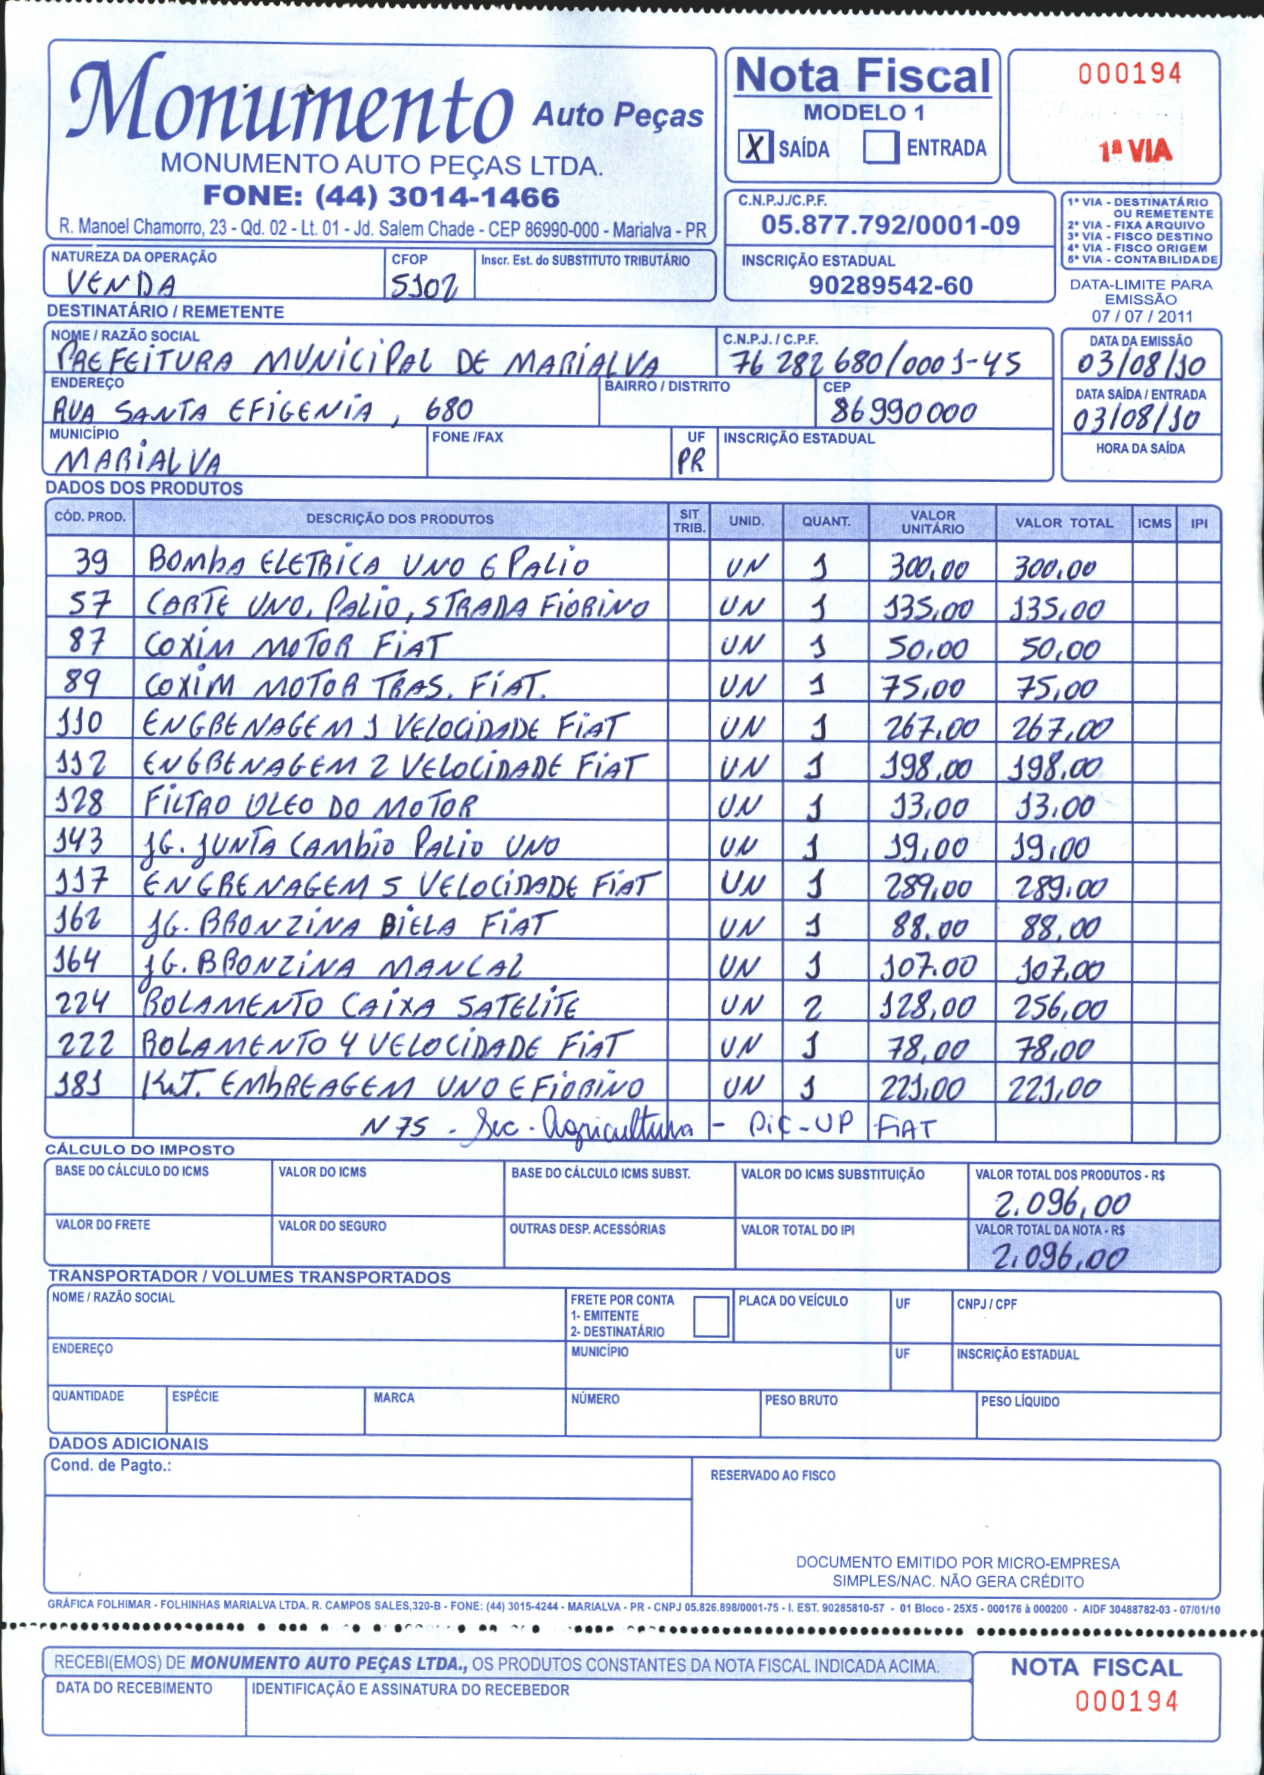 Monumento Auto Peças
MONUMENTO AUTO PEÇAS LTDA.
FONE: (44) 3014-1466
R. Manoel Chamorro, 23 - Qd. 02 - Lt. 01 - Jd. Salem Chade - CEP 86990-000 - Marialva - PR
Nota Fiscal
MODELO 1
X SAÍDA ENTRADA
000194
1ª VIA
C.N.P.J./C.P.F.
05.877.792/0001-09
INSCRIÇÃO ESTADUAL
90289542-60
1ª VIA - DESTINATÁRIO
OU REMETENTE
2ª VIA - FIXA ARQUIVO
3ª VIA - FISCO DESTINO
4ª VIA - FISCO ORIGEM
5ª VIA - CONTABILIDADE
DATA-LIMITE PARA
EMISSÃO
07 / 07 / 2011
NATUREZA DA OPERAÇÃO CFOP Inscr. Est. do SUBSTITUTO TRIBUTÁRIO
VENDA 5102
DESTINATÁRIO / REMETENTE
NOME / RAZÃO SOCIAL C.N.P.J. / C.P.F. DATA DA EMISSÃO
PREFEITURA MUNICIPAL DE MARIALVA 76 282 680/0001-45 03/08/10
ENDEREÇO BAIRRO / DISTRITO CEP DATA SAÍDA / ENTRADA
RUA SANTA EFIGENIA, 680 86990000 03/08/10
MUNICÍPIO FONE /FAX UF INSCRIÇÃO ESTADUAL HORA DA SAÍDA
MARIALVA PR
DADOS DOS PRODUTOS
CÓD. PROD. DESCRIÇÃO DOS PRODUTOS SIT TRIB. UNID. QUANT. VALOR UNITÁRIO VALOR TOTAL ICMS IPI
39 BOMBA ELETRICA UNO E PALIO UN 1 300,00 300,00
57 CARTE UNO, PALIO, STRADA FIORINO UN 1 135,00 135,00
87 COXIM MOTOR FIAT UN 1 50,00 50,00
89 COXIM MOTOR TRAS. FIAT. UN 1 75,00 75,00
110 ENGRENAGEM 1 VELOCIDADE FIAT UN 1 267,00 267,00
112 ENGRENAGEM 2 VELOCIDADE FIAT UN 1 198,00 198,00
128 FILTRO OLEO DO MOTOR UN 1 13,00 13,00
143 JG. JUNTA CAMBIO PALIO UNO UN 1 19,00 19,00
117 ENGRENAGEM 5 VELOCIDADE FIAT UN 1 289,00 289,00
162 JG. BRONZINA BIELA FIAT UN 1 88,00 88,00
164 JG. BRONZINA MANCAL UN 1 107,00 107,00
224 ROLAMENTO CAIXA SATELITE UN 2 128,00 256,00
222 ROLAMENTO 4 VELOCIDADE FIAT UN 1 78,00 78,00
181 KIT. EMBREAGEM UNO E FIORINO UN 1 221,00 221,00
N 75 - Sec. Agricultura - PIC-UP FIAT
CÁLCULO DO IMPOSTO
BASE DO CÁLCULO DO ICMS VALOR DO ICMS BASE DO CÁLCULO ICMS SUBST. VALOR DO ICMS SUBSTITUIÇÃO VALOR TOTAL DOS PRODUTOS - R$
2.096,00
VALOR DO FRETE VALOR DO SEGURO OUTRAS DESP. ACESSÓRIAS VALOR TOTAL DO IPI VALOR TOTAL DA NOTA - R$
2.096,00
TRANSPORTADOR / VOLUMES TRANSPORTADOS
NOME / RAZÃO SOCIAL FRETE POR CONTA PLACA DO VEÍCULO UF CNPJ / CPF
1- EMITENTE
2- DESTINATÁRIO
ENDEREÇO MUNICÍPIO UF INSCRIÇÃO ESTADUAL
QUANTIDADE ESPÉCIE MARCA NÚMERO PESO BRUTO PESO LÍQUIDO
DADOS ADICIONAIS
Cond. de Pagto.:
RESERVADO AO FISCO
DOCUMENTO EMITIDO POR MICRO-EMPRESA
SIMPLES/NAC. NÃO GERA CRÉDITO
GRÁFICA FOLHIMAR - FOLHINHAS MARIALVA LTDA. R. CAMPOS SALES,320-B - FONE: (44) 3015-4244 - MARIALVA - PR - CNPJ 05.826.898/0001-75 - I. EST. 90285810-57 - 01 Bloco - 25X5 - 000176 à 000200 - AIDF 30488782-03 - 07/01/10
RECEBI(EMOS) DE MONUMENTO AUTO PEÇAS LTDA., OS PRODUTOS CONSTANTES DA NOTA FISCAL INDICADA ACIMA.
DATA DO RECEBIMENTO IDENTIFICAÇÃO E ASSINATURA DO RECEBEDOR
NOTA FISCAL
000194